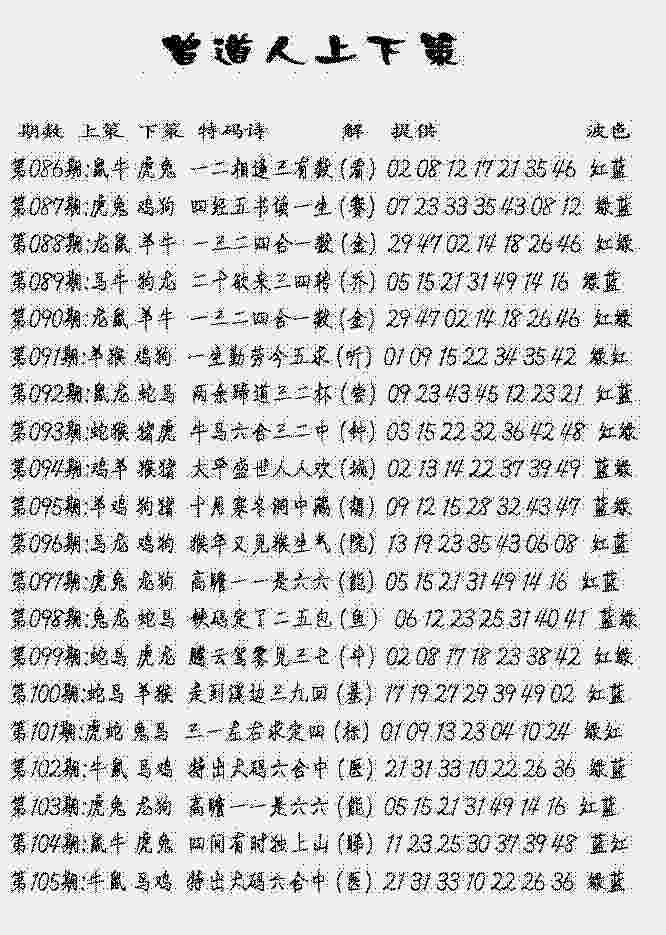 曾道人上下策
期数 上策 下策 特码诗 解 提供 波色
第086期:鼠牛 虎兔 一二相逢三有数 (看) 02 08 12 17 21 35 46 红蓝
第087期:虎兔 鸡狗 四经五书读一生 (赛) 07 23 33 35 43 08 12 绿蓝
第088期:龙鼠 羊牛 一三二四合一数 (金) 29 47 02 14 18 26 46 红绿
第089期:马牛 狗龙 二十欲来三四转 (乔) 05 15 21 31 49 14 16 绿蓝
第090期:龙鼠 羊牛 一三二四合一数 (金) 29 47 02 14 18 26 46 红绿
第091期:羊猴 鸡狗 一生勤劳今五求 (听) 01 09 15 22 34 35 42 绿红
第092期:鼠龙 蛇马 两余蹄道三二杯 (尝) 09 23 43 45 12 23 21 红蓝
第093期:蛇猴 猪虎 牛马六合三二中 (钟) 03 15 22 32 36 42 48 红绿
第094期:鸡羊 猴猪 太平盛世人人欢 () 02 13 14 22 37 39 49 蓝绿
第095期:羊鸡 狗猪 十月寒冬洞中藏 () 09 12 15 28 32 43 47 蓝绿
第096期:马龙 鸡狗 猴年又见猴生气 (院) 13 19 23 35 43 06 08 红蓝
第097期:虎兔 龙狗 高瞻一一是六六 (能) 05 15 21 31 49 14 16 红蓝
第098期:兔龙 蛇马 铁码定了二五包 (鱼) 06 12 23 25 31 40 41 蓝绿
第099期:蛇马 虎龙 腾云驾雾见三七 (斗) 02 08 17 18 23 38 42 红绿
第100期:蛇马 羊猴 走到溪边三九回 (墓) 17 19 27 29 39 49 02 红蓝
第101期:虎蛇 兔马 三一左右求定四 (标) 01 09 13 23 04 10 24 绿红
第102期:牛鼠 马鸡 特出大码六合中 (医) 21 31 33 10 22 26 36 绿蓝
第103期:虎兔 龙狗 高瞻一一是六六 (能) 05 15 21 31 49 14 16 红蓝
第104期:鼠牛 虎兔 四间有时独上山 (睇) 11 23 25 30 37 39 48 蓝红
第105期:牛鼠 马鸡 特出大码六合中 (医) 21 31 33 10 22 26 36 绿蓝